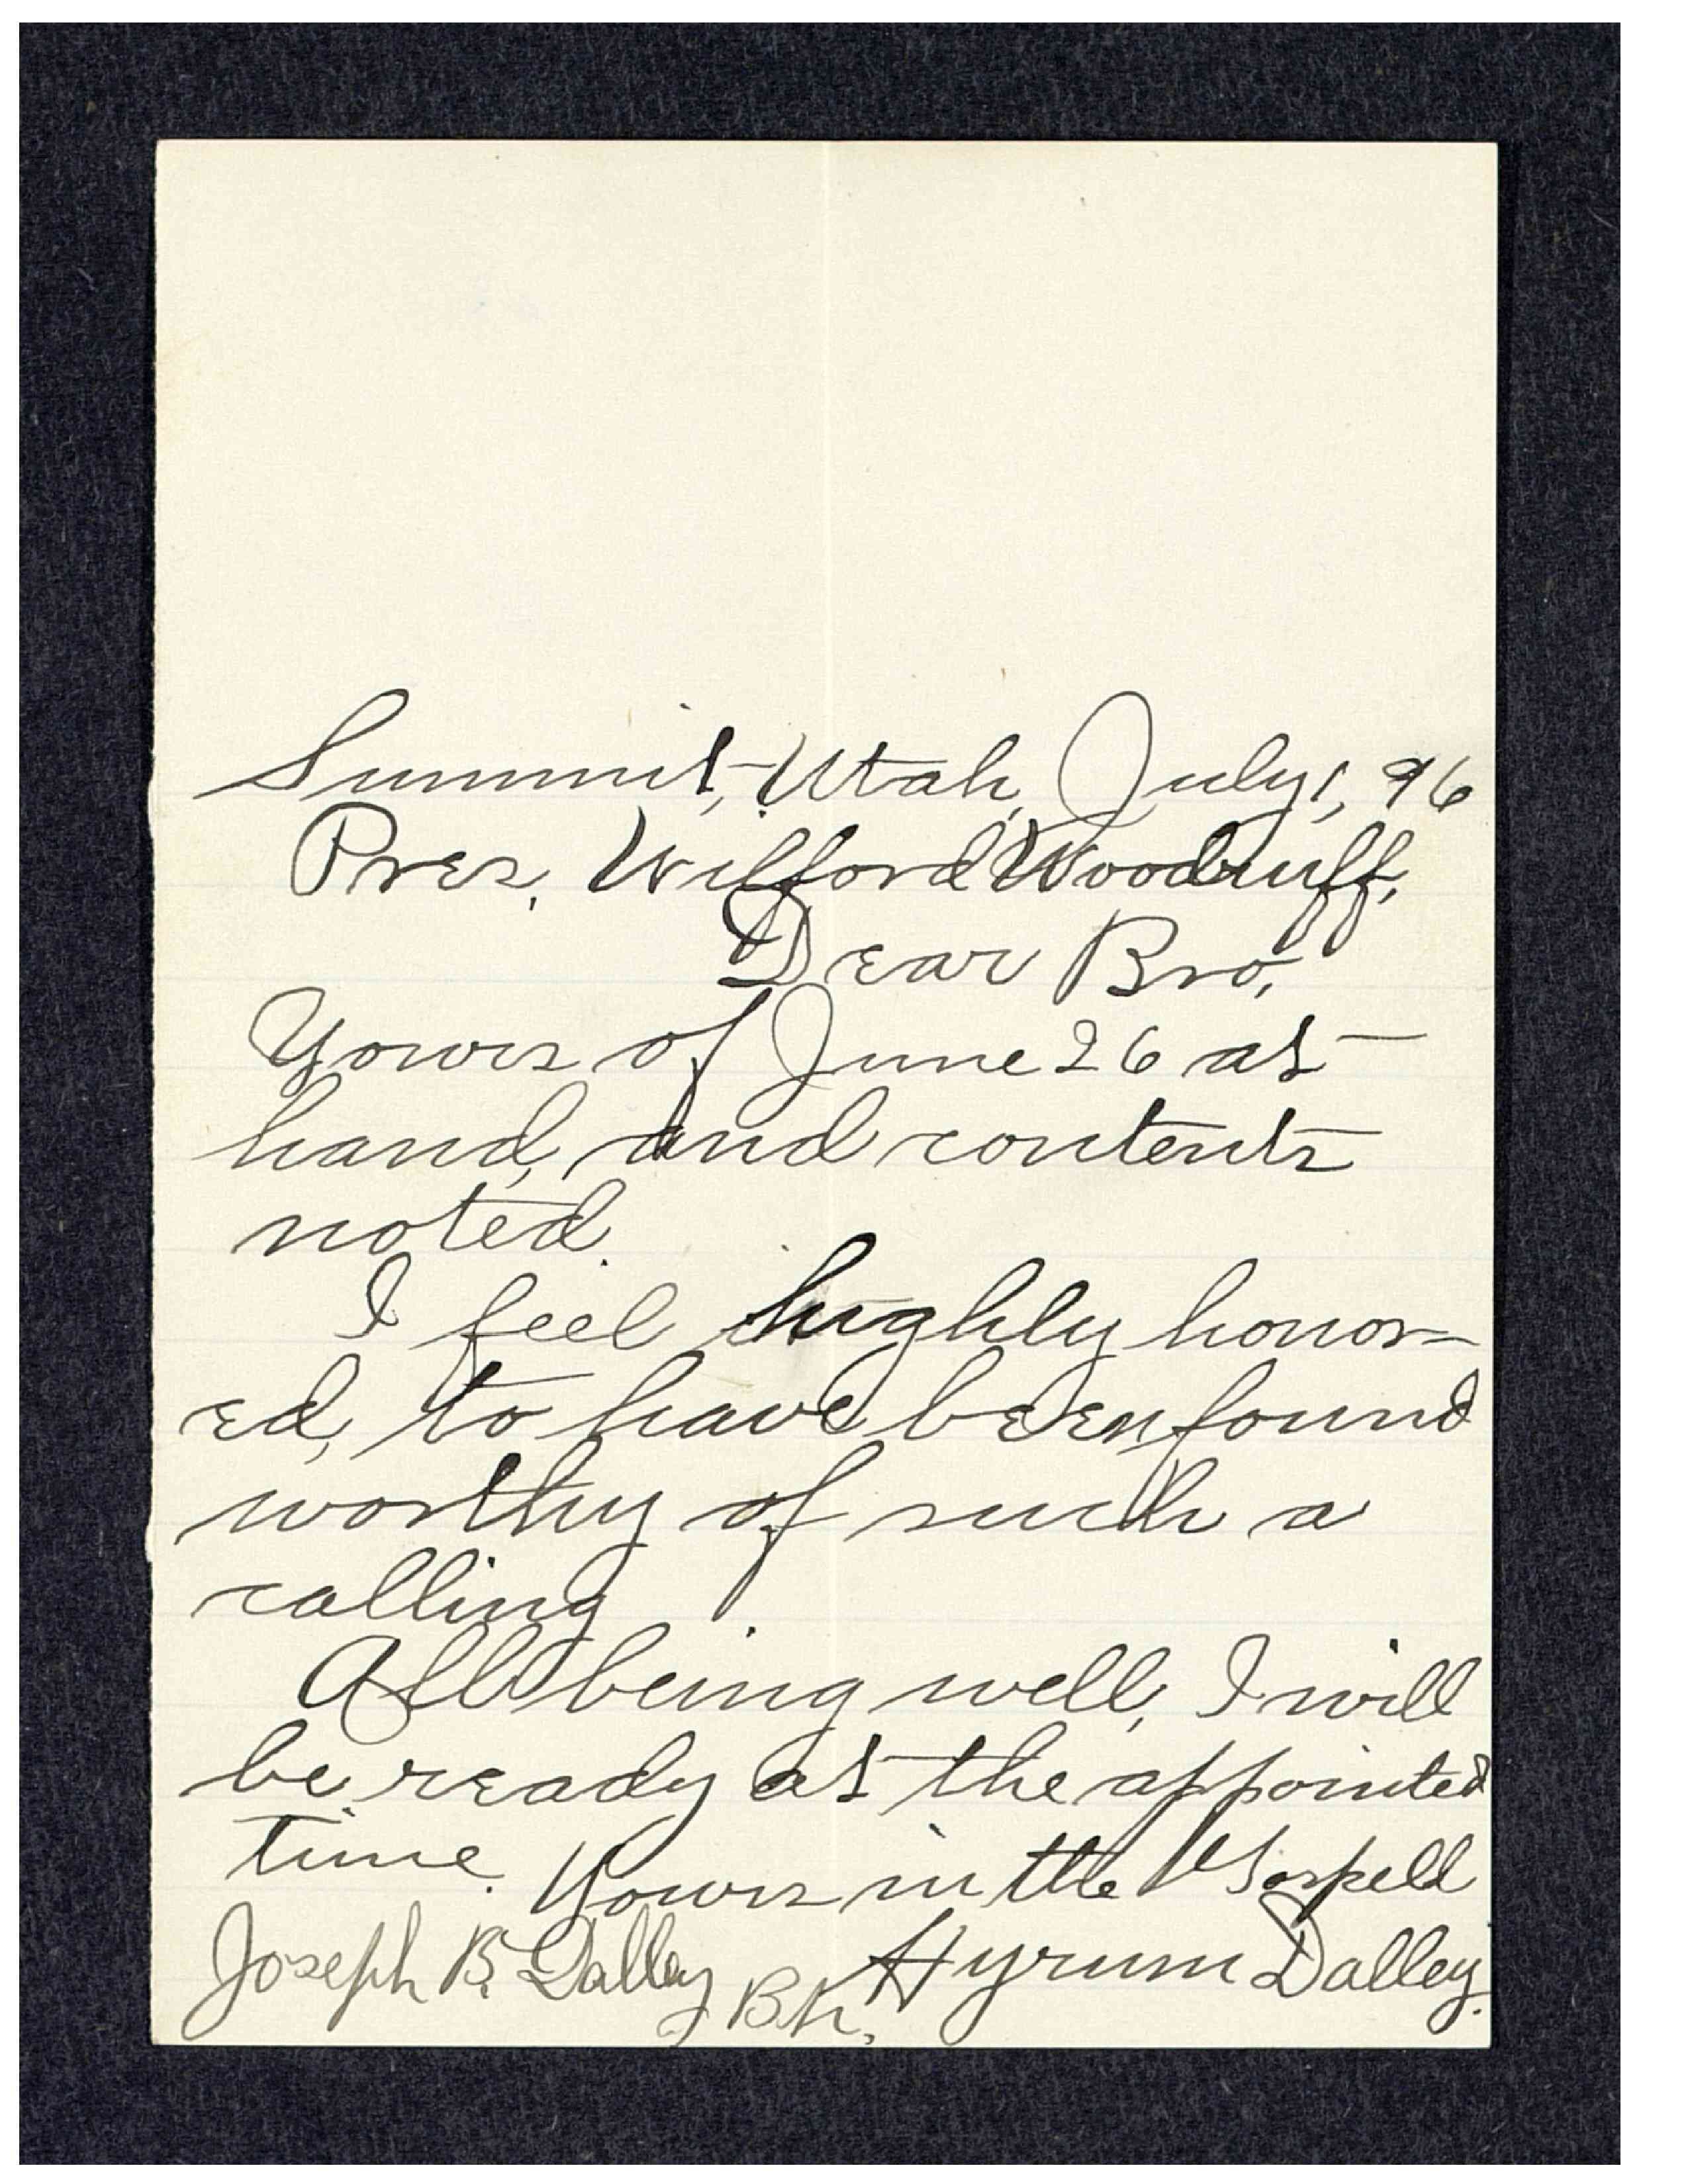 Summit, Utah, July 1, 96
Pres. Wilford Woodruff,
Dear Bro,
Yours of June 26 at
hand, and contents
noted.
I feel highly honor-
ed, to have been found
worthy of such a
calling.
All being well, I will
be ready at the appointed
time. Yours in the Gospell
Joseph B. Dalley Bh. Hyrum Dalley.